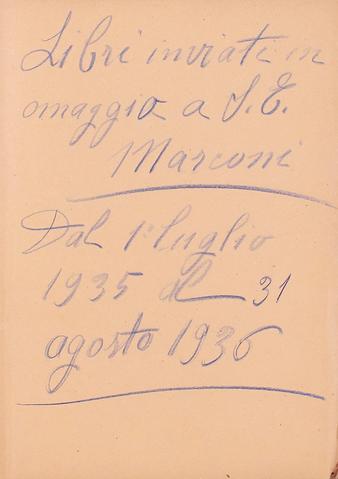 Libri inviati in
omaggio a S.E.
Marconi
Dal 1° luglio
1935 al 31
agosto 1936